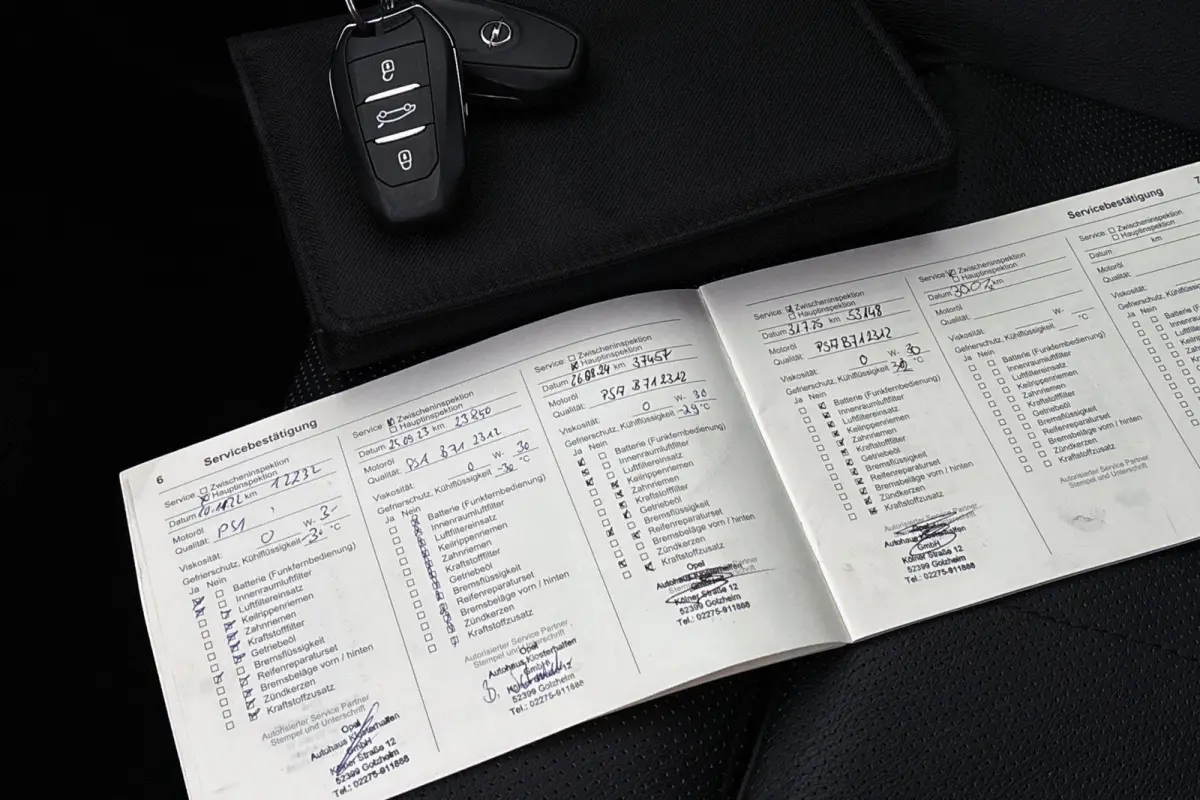 6
Servicebestätigung
Service: Zwischeninspektion
Hauptinspektion
Datum km 12232
Motoröl
Qualität: PS1
Viskosität: 0 W-
Gefrierschutz, Kühlflüssigkeit °C
Ja Nein
Batterie (Funkfernbedienung)
Innenraumluftfilter
Luftfiltereinsatz
Keilrippenriemen
Zahnriemen
Kraftstofffilter
Getriebeöl
Bremsflüssigkeit
Reifenreparaturset
Bremsbeläge vorn / hinten
Zündkerzen
Kraftstoffzusatz
Autorisierter Service Partner
Stempel und Unterschrift
Opel
Autohaus Klosterhalfen
GmbH
Kölner Straße 12
52399 Golzheim
Tel.: 02275-911888
Service: Zwischeninspektion
Hauptinspektion
Datum 25.09.23 km 23850
Motoröl
Qualität: PS1 B71 2312
Viskosität: 0 W-30
Gefrierschutz, Kühlflüssigkeit -30 °C
Ja Nein
Batterie (Funkfernbedienung)
Innenraumluftfilter
Luftfiltereinsatz
Keilrippenriemen
Zahnriemen
Kraftstofffilter
Getriebeöl
Bremsflüssigkeit
Reifenreparaturset
Bremsbeläge vorn / hinten
Zündkerzen
Kraftstoffzusatz
Autorisierter Service Partner
Stempel und Unterschrift
Opel
Autohaus Klosterhalfen
GmbH
52399 Golzheim
Tel.: 02275-911888
Service: Zwischeninspektion
Hauptinspektion
Datum 26.08.24 km 37457
Motoröl
Qualität: PSA B71 2312
Viskosität: 0 W-30
Gefrierschutz, Kühlflüssigkeit -29 °C
Ja Nein
Batterie (Funkfernbedienung)
Innenraumluftfilter
Luftfiltereinsatz
Keilrippenriemen
Zahnriemen
Kraftstofffilter
Getriebeöl
Bremsflüssigkeit
Reifenreparaturset
Bremsbeläge vorn / hinten
Zündkerzen
Kraftstoffzusatz
Opel
Autohaus Klosterhalfen
GmbH
Kölner Straße 12
52399 Golzheim
Tel.: 02275-911888
Servicebestätigung
7
Service: Zwischeninspektion
Hauptinspektion
Datum 31.7.25 km 53148
Motoröl
Qualität: PSA B71 2312
Viskosität: 0 W-30
Gefrierschutz, Kühlflüssigkeit °C
Ja Nein
Batterie (Funkfernbedienung)
Innenraumluftfilter
Luftfiltereinsatz
Keilrippenriemen
Zahnriemen
Kraftstofffilter
Getriebeöl
Bremsflüssigkeit
Reifenreparaturset
Bremsbeläge vorn / hinten
Zündkerzen
Kraftstoffzusatz
Autorisierter Service Partner
Autohaus Klosterhalfen
GmbH
Kölner Straße 12
52399 Golzheim
Tel.: 02275-911888
Service: Zwischeninspektion
Hauptinspektion
Datum km
Motoröl
Qualität:
Viskosität: W-
Gefrierschutz, Kühlflüssigkeit °C
Ja Nein
Batterie (Funkfernbedienung)
Innenraumluftfilter
Luftfiltereinsatz
Keilrippenriemen
Zahnriemen
Kraftstofffilter
Getriebeöl
Bremsflüssigkeit
Reifenreparaturset
Bremsbeläge vorn / hinten
Zündkerzen
Kraftstoffzusatz
Autorisierter Service Partner
Stempel und Unterschrift
Service: Zwischeninspektion
Hauptinspektion
Datum km
Motoröl
Qualität:
Viskosität:
Gefrierschutz,
Ja Nein